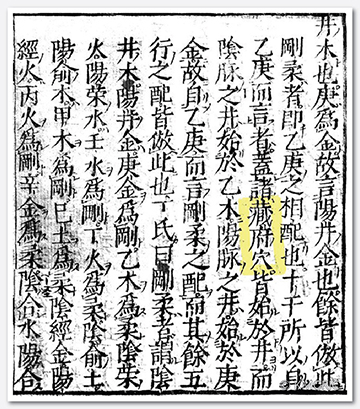 井木也庚爲金故言陽井金也餘皆倣此
剛柔者即乙庚之相配也十干所以自
乙庚而言者蓋諸藏府穴皆始於井而
陰脉之井始於乙木陽脉之井始於庚
金故自乙庚而言剛柔之配而其餘五
行之配皆倣此也丁氏曰剛柔者謂陰
井木陽井金庚金爲剛乙木爲柔陰榮
火陽榮水壬水爲剛丁火爲柔陰俞土
陽俞木甲木爲剛己土爲柔陰經金陽
經火丙火爲剛辛金爲柔陰合水陽合